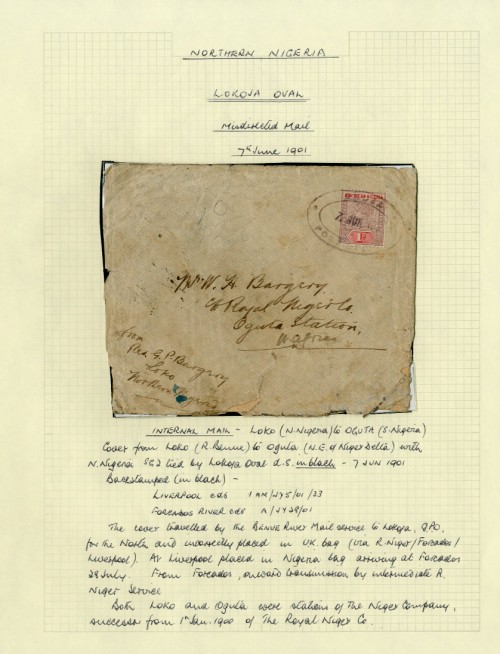 NORTHERN NIGERIA
LOKOJA OVAL
Misdirected Mail
7th June 1901
7 JUN
1D
Mr W. H. Bargery
c/o Royal Niger Co.
Oguta Station,
W. Africa
From
Rev. G. P. Bargery
Loko
Northern Nigeria
INTERNAL MAIL - LOKO (N. Nigeria) to OGUTA (S. Nigeria)
Cover from Loko (R. Benue) to Oguta (N.E. of Niger Delta) with
N. Nigeria SG2 tied by Lokoja Oval d.s. in black - 7 JUN 1901
Backstamped (in black) -
LIVERPOOL cds 1 AM/JY5/01/23
FORCADOS RIVER cds A/JY28/01
The cover travelled by the BENUE River Mail service to Lokoja, GPO,
for the North and incorrectly placed in UK. bag (via R. Niger/Forcados/
Liverpool). At Liverpool placed in Nigeria bag arriving at Forcados
28 July. From Forcados, onward transmission by intermediate R.
Niger Service
Both Loko and Oguta were stations of The Niger Company,
successor from 1st Jan. 1900 of The Royal Niger Co.